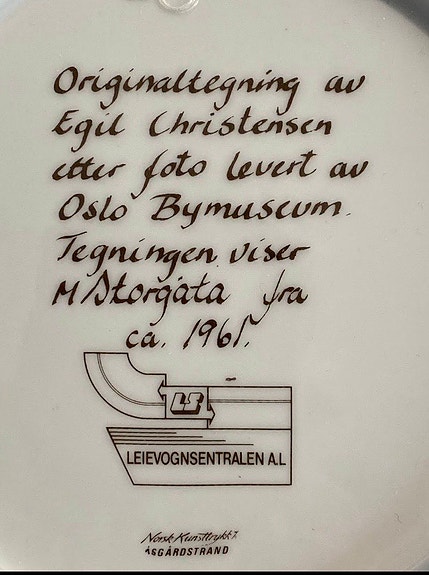 Originaltegning av
Egil Christensen
etter foto levert av
Oslo Bymuseum.
Tegningen viser
M/Storgata fra
ca. 1961.
LS
LEIEVOGNSENTRALEN A.L
Norsk Kunsttrykk
ÅSGÅRDSTRAND